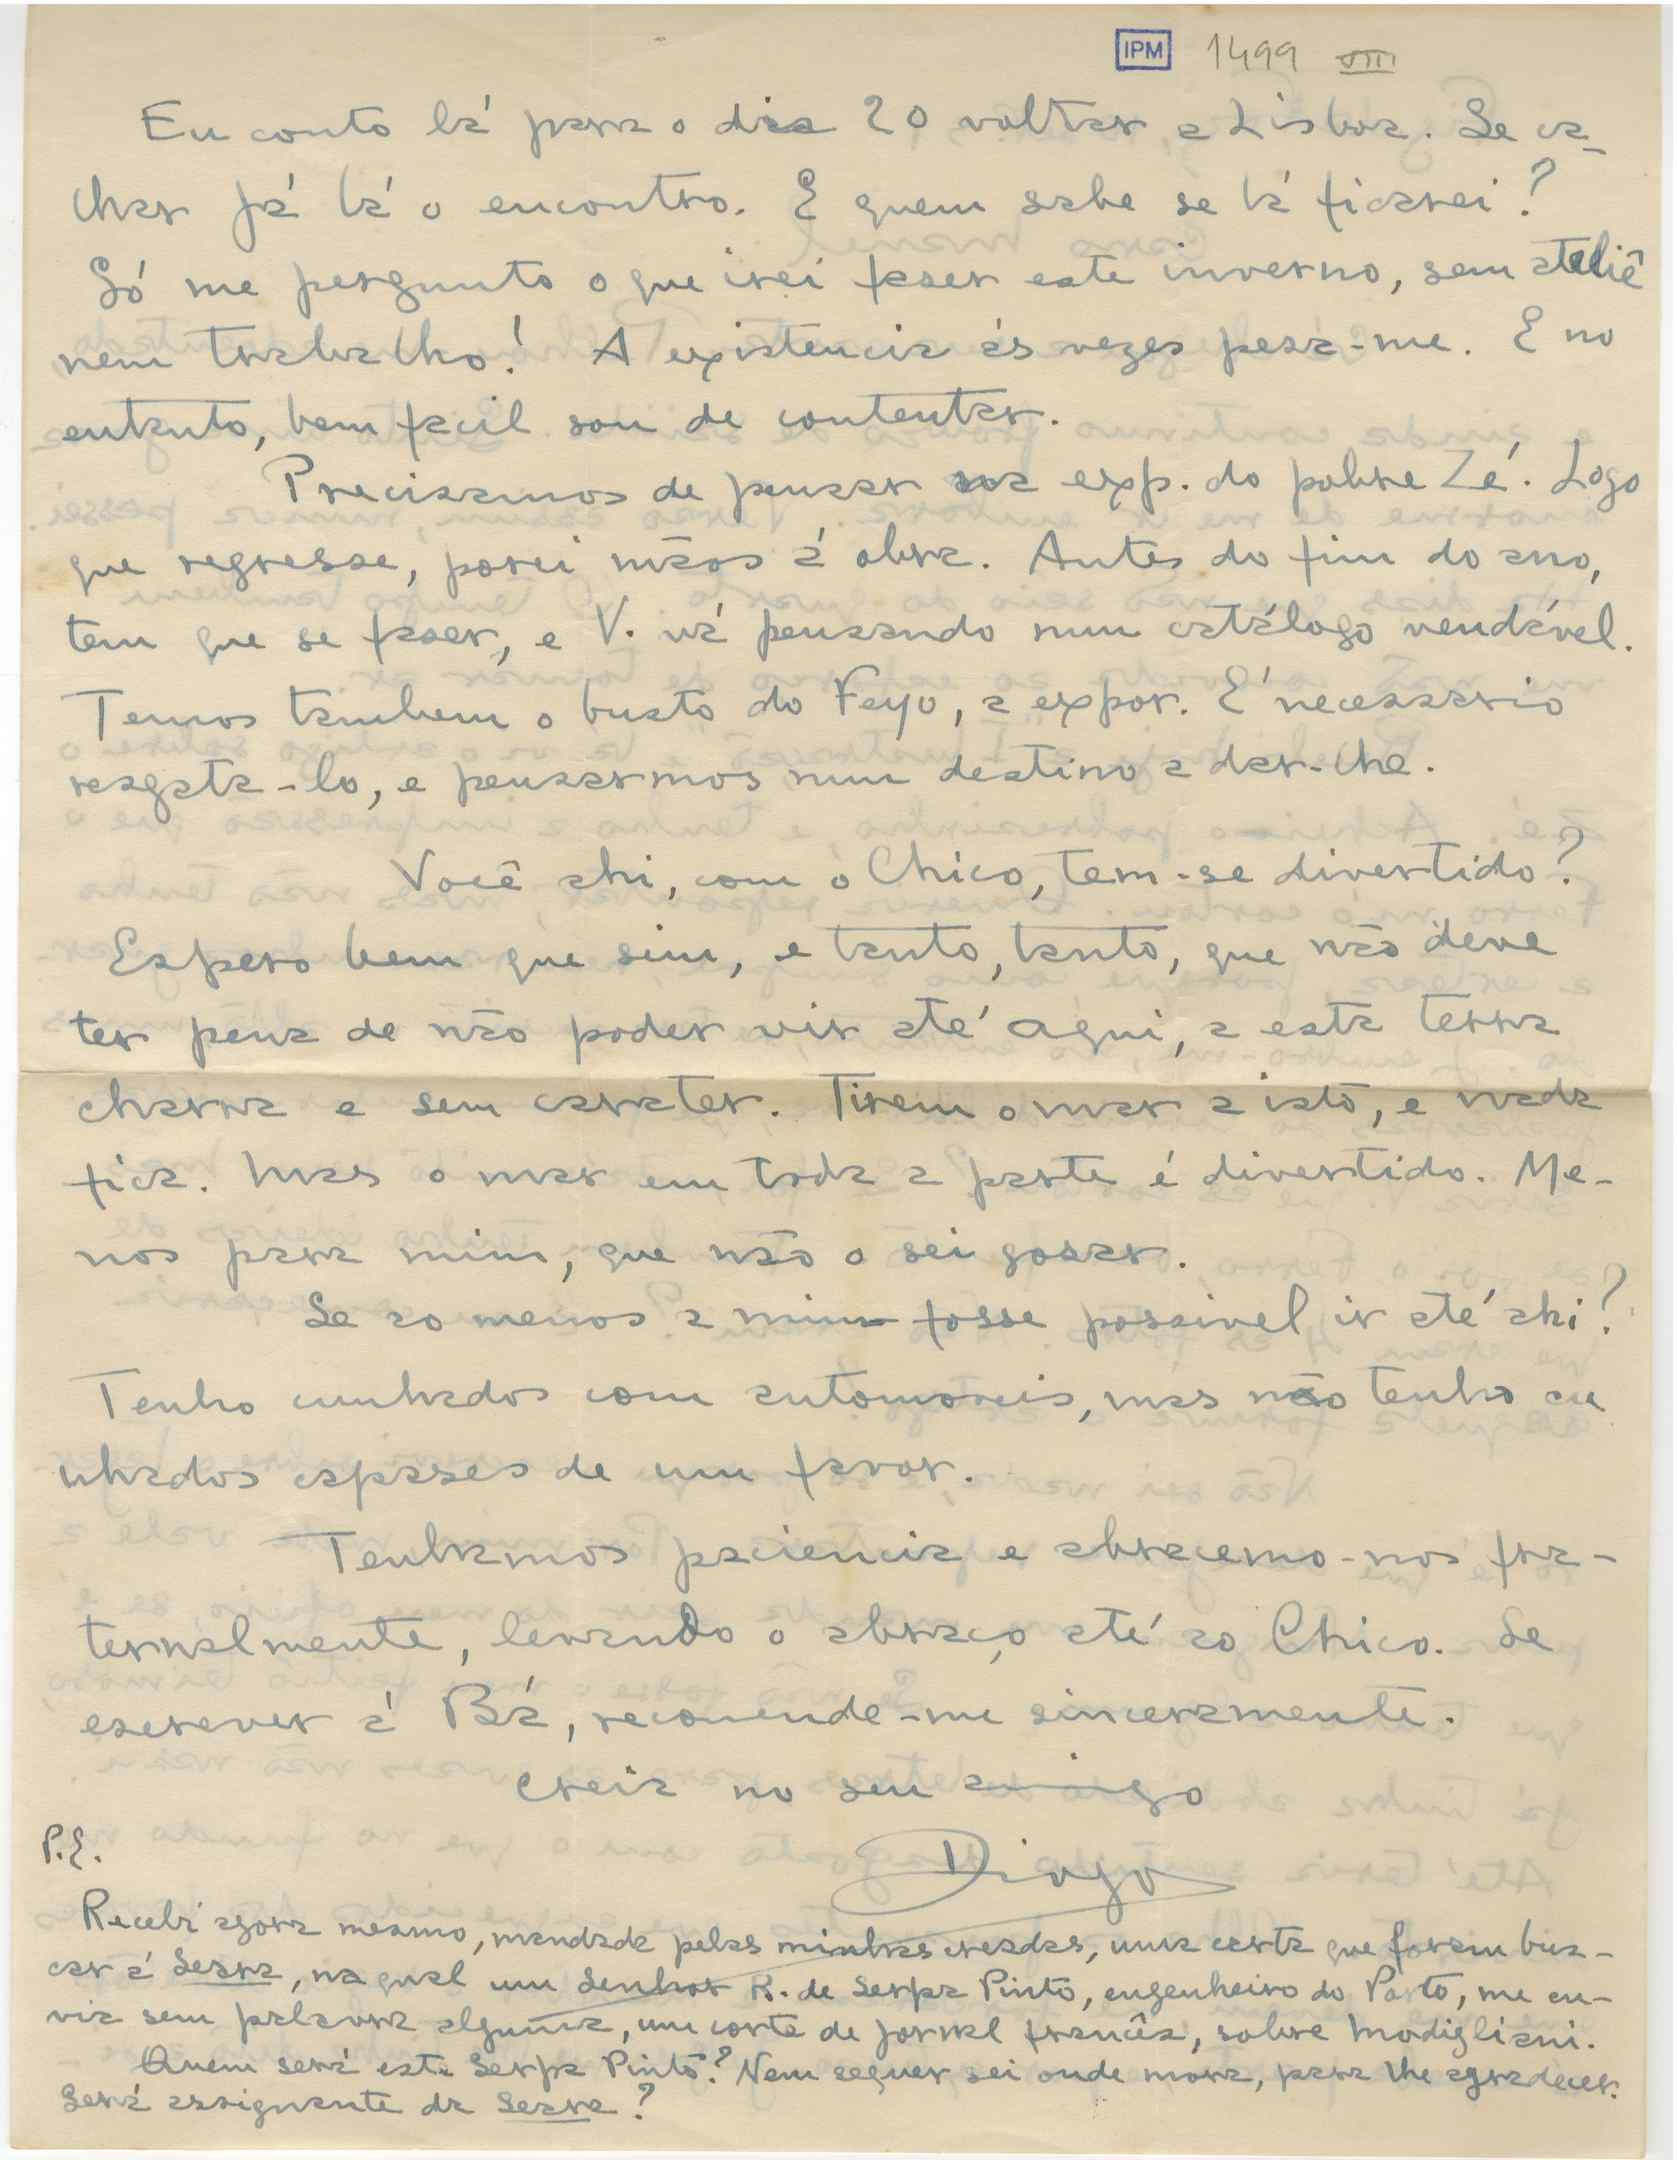 IPM 1499 VIII
Eu conto lá para o dia 20 voltar a Lisboa. Se ca-
lhar já lá o encontro. E quem sabe se lá ficarei?
Só me pergunto o que irei faser este inverno, sem ateliê
nem trabalho! A existencia ás vezes pesa-me. E no
entanto, bem facil sou de contentar.
Precisamos de pensar na exp. do pobre Zé. Logo
que regresse, porei mãos á obra. Antes do fim do ano,
tem que se faser, e V. vá pensando num catálogo vendável.
Temos tambem o busto do Feyo, a expor. E' necessario
resgata-lo, e pensarmos num destino a dar-lhe.
Você ahi, com o Chico, tem-se divertido?
Espero bem que sim, e tanto, tanto, que não deve
ter pena de não poder vir até aqui, a esta terra
charra e sem carater. Tirem o mar a isto, e nada
fica. Mas o mar em toda a parte é divertido. Me-
nos para mim, que não o sei gosar.
Se ao menos a mim fosse possivel ir até ahi?
Tenho cunhados com automoveis, mas não tenho cu
nhados capases de um favor.
Tenhamos paciencia e abracemo-nos fra-
ternalmente, levando o abraço até ao Chico. Se
escrever á Bá, recomende-me sinceramente.
Creia no seu amigo
Diogo
P.S.
Recebi agora mesmo, mandada pelas minhas creadas, uma carta que foram bus-
car á Seara, na qual um Senhor R. de Serpa Pinto, engenheiro do Porto, me en-
via sem palavra alguma, um corte de jornal francês, sobre Modigliani.
Quem será este Serpa Pinto? Nem sequer sei onde mora, para lhe agradecer.
Será assignante da Seara?